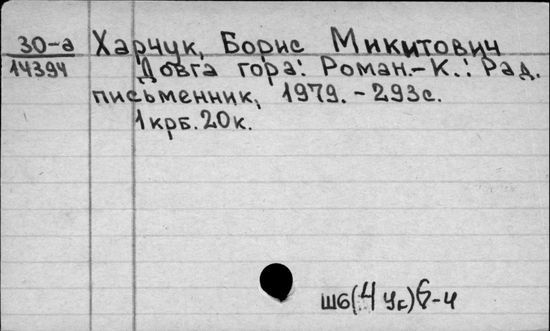 30-а Харчук, Борис Микитович
14394 Довга гора: Роман.-К.: Рад.
письменник, 1979. - 293с.
1крб. 20к.
Ш6(4Ук)6-4